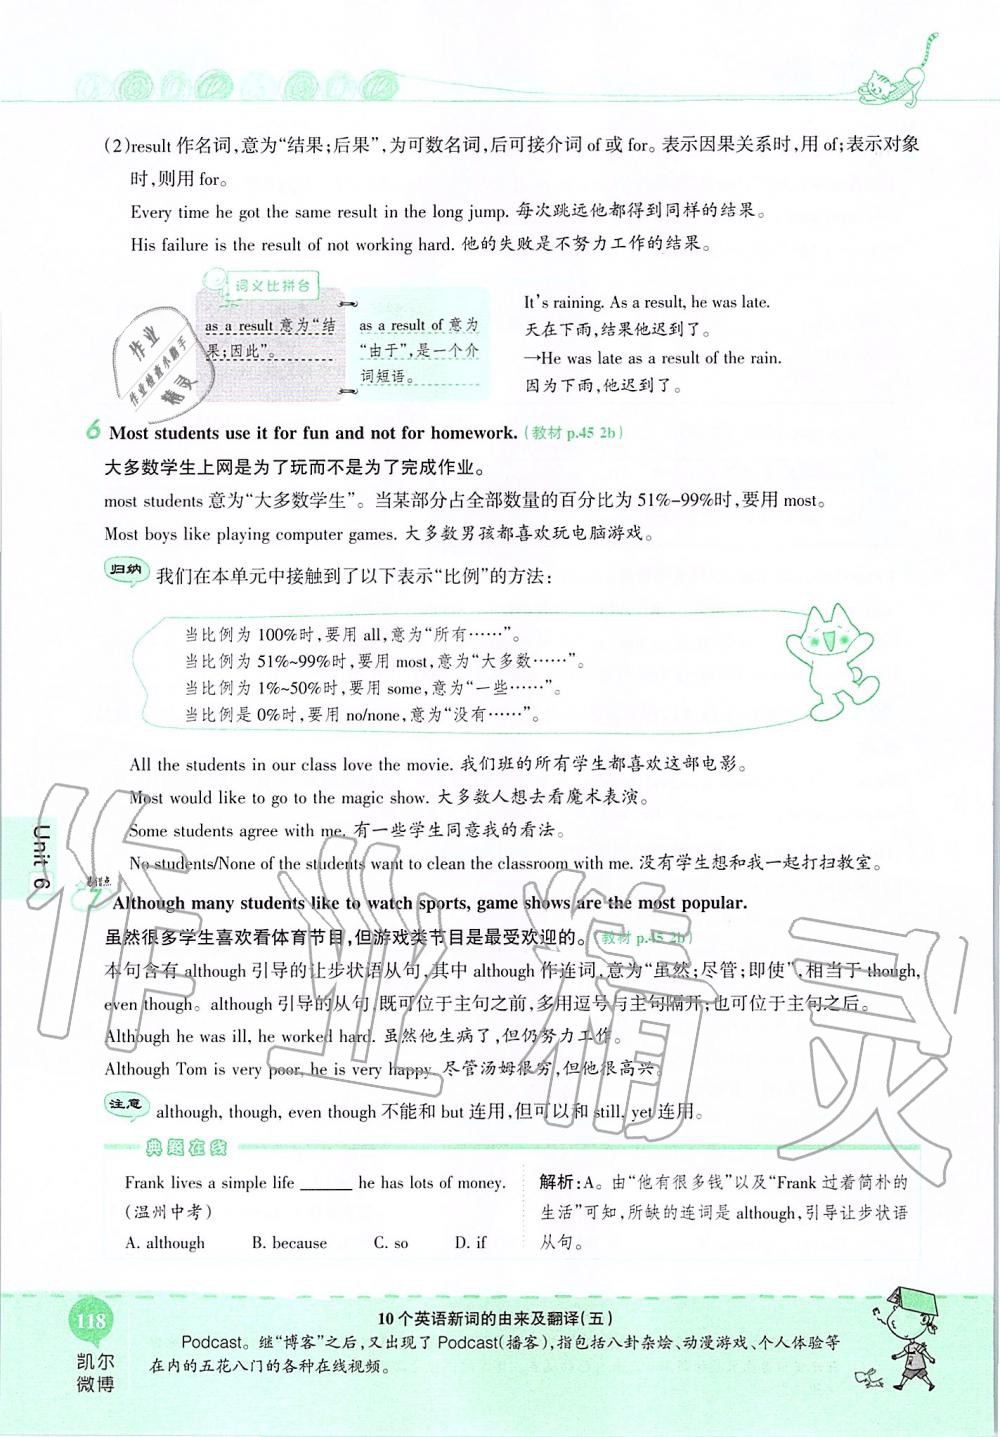 (2)result 作名词,意为“结果;后果”,为可数名词,后可接介词 of 或 for。表示因果关系时,用 of;表示对象
时,则用 for。
Every time he got the same result in the long jump. 每次跳远他都得到同样的结果。
His failure is the result of not working hard. 他的失败是不努力工作的结果。
词义比拼台
as a result 意为“结
果;因此”。
as a result of 意为
“由于”,是一个介
词短语。
It's raining. As a result, he was late.
天在下雨,结果他迟到了。
→He was late as a result of the rain.
因为下雨,他迟到了。
作业
作业检查小助手
精灵
6 Most students use it for fun and not for homework. (教材 p.45 2b)
大多数学生上网是为了玩而不是为了完成作业。
most students 意为“大多数学生”。当某部分占全部数量的百分比为 51%-99%时,要用 most。
Most boys like playing computer games. 大多数男孩都喜欢玩电脑游戏。
归纳 我们在本单元中接触到了以下表示“比例”的方法:
当比例为 100%时,要用 all,意为“所有……”。
当比例为 51%~99%时,要用 most,意为“大多数……”。
当比例为 1%~50%时,要用 some,意为“一些……”。
当比例是 0%时,要用 no/none,意为“没有……”。
All the students in our class love the movie. 我们班的所有学生都喜欢这部电影。
Most would like to go to the magic show. 大多数人想去看魔术表演。
Some students agree with me. 有一些学生同意我的看法。
No students/None of the students want to clean the classroom with me. 没有学生想和我一起打扫教室。
Unit 6
7 Although many students like to watch sports, game shows are the most popular.
虽然很多学生喜欢看体育节目,但游戏类节目是最受欢迎的。(教材 p.45 2b)
本句含有 although 引导的让步状语从句,其中 although 作连词,意为“虽然;尽管;即使”,相当于 though,
even though。although 引导的从句,既可位于主句之前,多用逗号与主句隔开;也可位于主句之后。
Although he was ill, he worked hard. 虽然他生病了,但仍努力工作。
Although Tom is very poor, he is very happy. 尽管汤姆很穷,但他很高兴。
注意 although, though, even though 不能和 but 连用,但可以和 still, yet 连用。
作业精灵
典题在线
Frank lives a simple life ______ he has lots of money.
(温州中考)
A. although B. because C. so D. if
解析:A。由“他有很多钱”以及“Frank 过着简朴的
生活”可知,所缺的连词是 although,引导让步状语
从句。
118
凯尔
微博
10 个英语新词的由来及翻译(五)
Podcast。继“博客”之后,又出现了 Podcast(播客),指包括八卦杂烩、动漫游戏、个人体验等
在内的五花八门的各种在线视频。